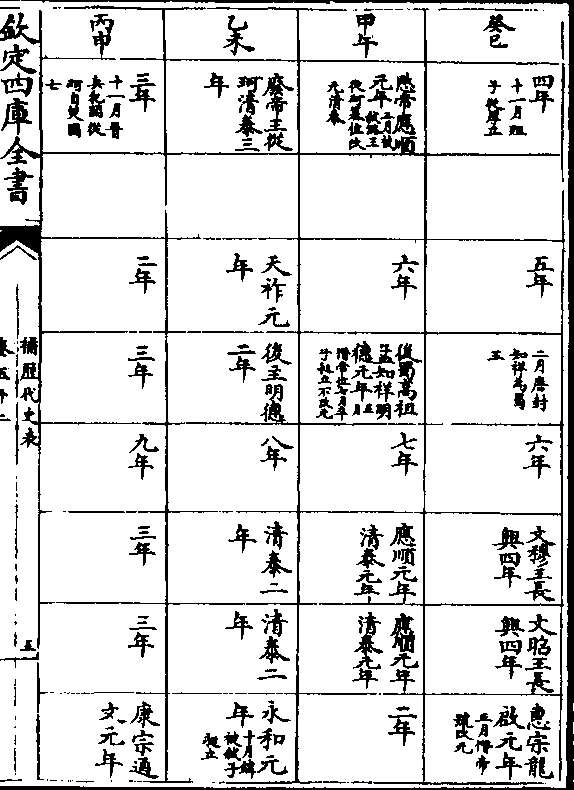 癸巳
四年
十一月殂
子從厚立
五年
二月唐封
知祥為蜀
王
六年
文穆王長
興四年
文昭王長
興四年
惠宗龍
啟元年
正月僭帝
號改元
甲午
愍帝應順
元年
三月被
弒潞王
從珂篡位改
元清泰
六年
後蜀高祖
孟知祥明
德元年
正月
僭帝位七月卒
子昶立不改元
七年
應順元年
清泰元年
應順元年
清泰元年
二年
乙未
廢帝王從
珂清泰三
年
天祚元
年
後主明德
二年
八年
清泰二
年
清泰二
年
永和元
年
十月鏻
被弒子
昶立
丙申
三年
十一月晉
兵犯闕從
珂自焚國
亡
二年
三年
九年
三年
三年
康宗通
文元年
欽定四庫全書
補歷代史表
卷五十二
五